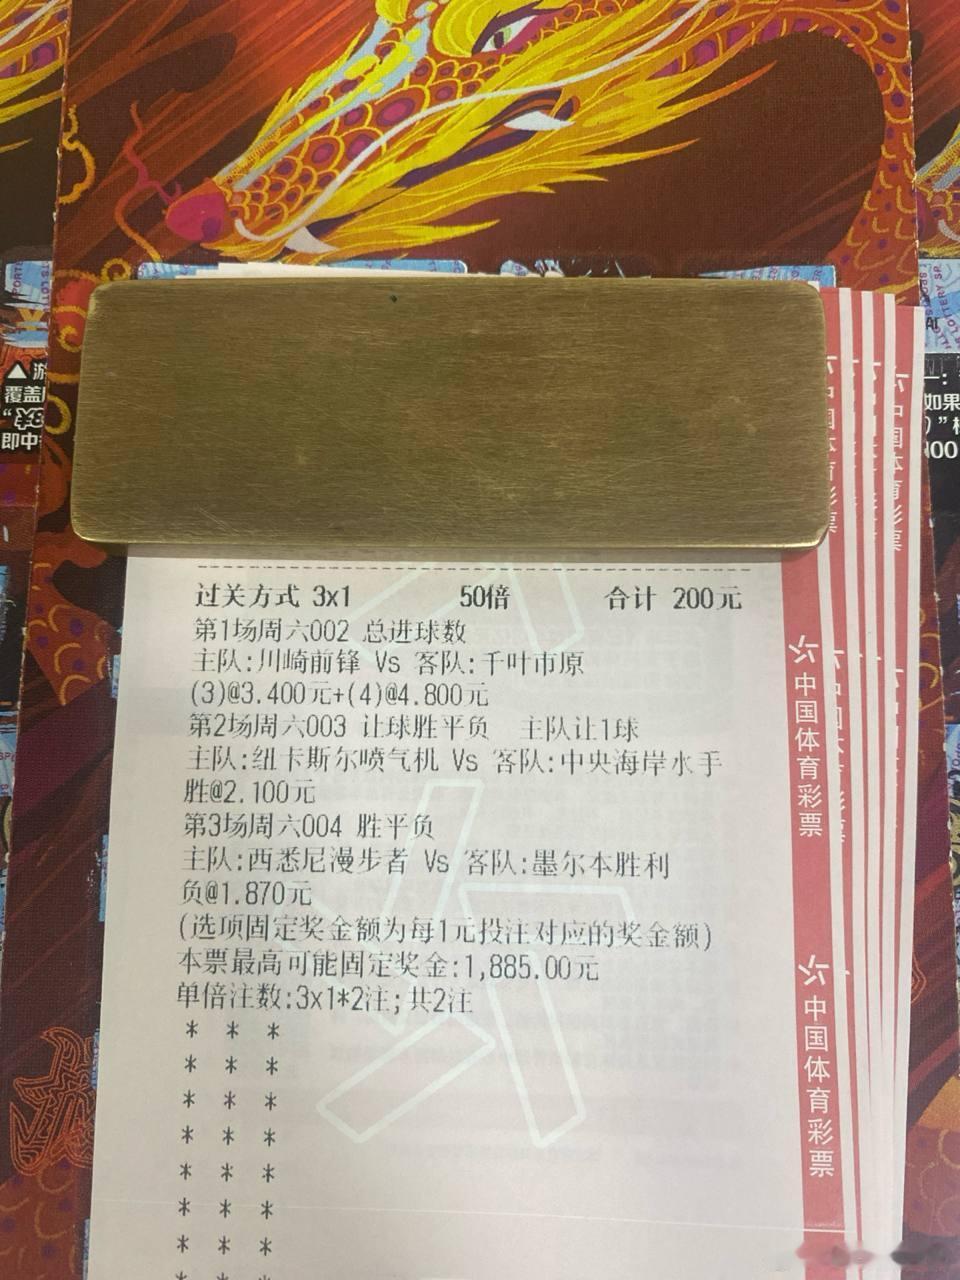 ▲游
覆盖
即中
一：
如果
)”
00
过关方式 3x1 50倍 合计 200元
第1场周六002 总进球数
主队:川崎前锋 Vs 客队:千叶市原
(3)@3.400元+(4)@4.800元
第2场周六003 让球胜平负 主队让1球
主队:纽卡斯尔喷气机 Vs 客队:中央海岸水手
胜@2.100元
第3场周六004 胜平负
主队:西悉尼漫步者 Vs 客队:墨尔本胜利
负@1.870元
(选项固定奖金额为每1元投注对应的奖金额)
本票最高可能固定奖金:1,885.00元
单倍注数:3x1*2注;共2注
* * *
* * *
* * *
* * *
* * *
* * *
* * *
中国体育彩票
中国体育彩票
中国体育彩票